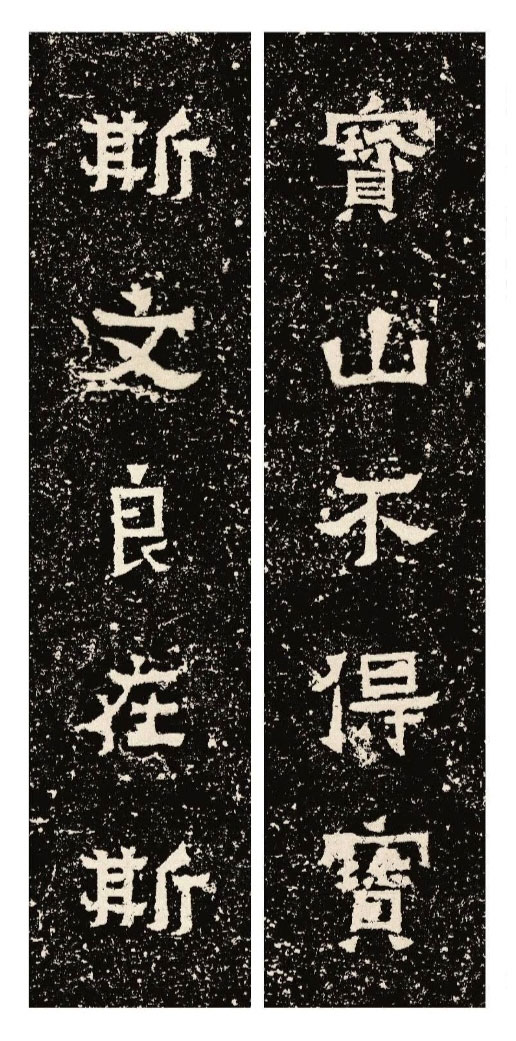 寶山不得寶
斯文良在斯